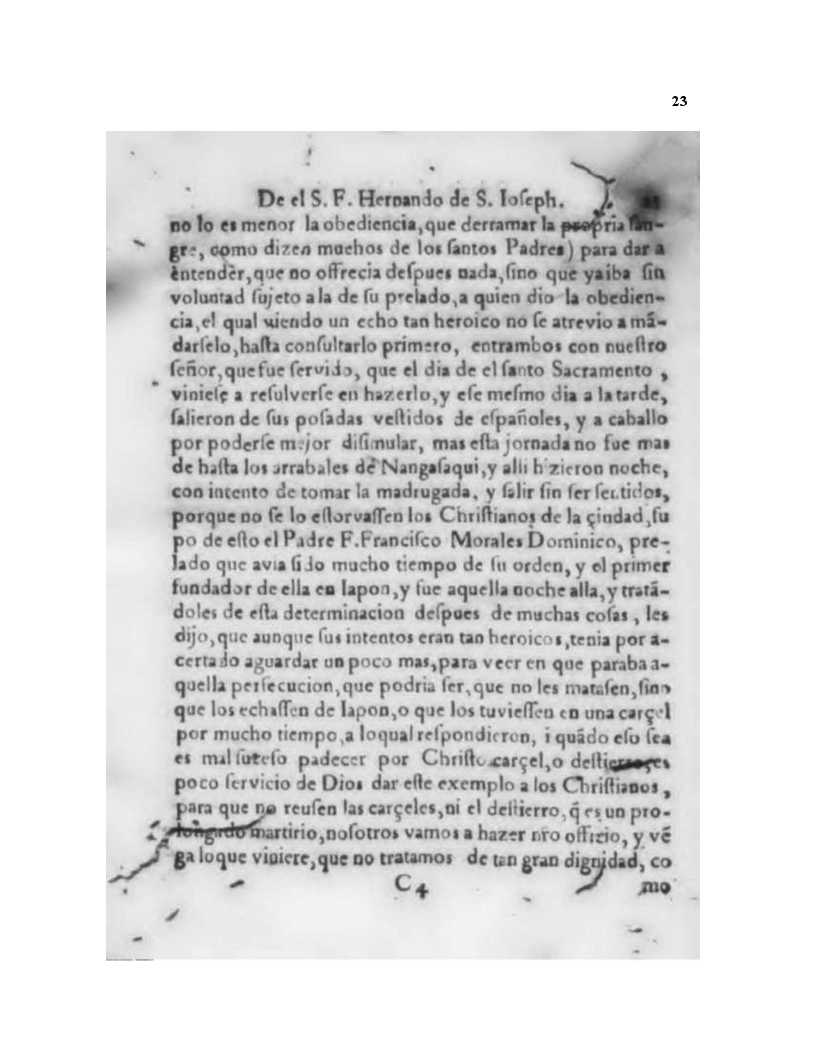 23
De el S. F. Hernando de S. Ioſeph.
no lo es menor la obediencia,que derramar la propria ſan-
gre, como dizen muchos de los ſantos Padres) para dar a
entender,que no offrecia deſpues nada,ſino que yaiba ſin
voluntad ſujeto a la de ſu prelado,a quien dio la obedien-
cia,el qual viendo un echo tan heroico no ſe atrevio a mã-
darſelo,haſta conſultarlo primero, entrambos con nueſtro
ſeñor,que fue ſervido, que el dia de el ſanto Sacramento ,
vinieſe a reſolverſe en hazerlo,y eſe meſmo dia a la tarde,
ſalieron de ſus poſadas veſtidos de eſpañoles, y a caballo
por poderſe mejor diſimular, mas eſta jornada no fue mas
de haſta los arrabales de Nangaſaqui,y alli hizieron noche,
con intento de tomar la madrugada, y ſalir ſin ſer ſentidos,
porque no ſe lo eſtorvaſſen los Chriſtianos de la çiudad,ſu
po de eſto el Padre F.Franciſco Morales Dominico, pre-
lado que avia ſido mucho tiempo de ſu orden, y el primer
fundador de ella en Iapon,y fue aquella noche alla,y tratã-
doles de eſta determinacion deſpues de muchas coſas , les
dijo,que aunque ſus intentos eran tan heroicos,tenia por a-
certado aguardar un poco mas,para veer en que paraba a-
quella perſecucion,que podria ſer,que no les mataſen,ſino
que los echaſſen de Iapon,o que los tuvieſſen en una carçel
por mucho tiempo,a loqual reſpondieron, i quãdo eſo ſea
es mal ſuceſo padecer por Chriſto carçel,o deſtierro,es
poco ſervicio de Dios dar eſte exemplo a los Chriſtianos ,
para que no reuſen las carçeles,ni el deſtierro,q̃ es un pro-
longado martirio,noſotros vamos a hazer nr̃o offizio, y vẽ
ga loque viniere,que no tratamos de tan gran dignidad, co
C 4
mo